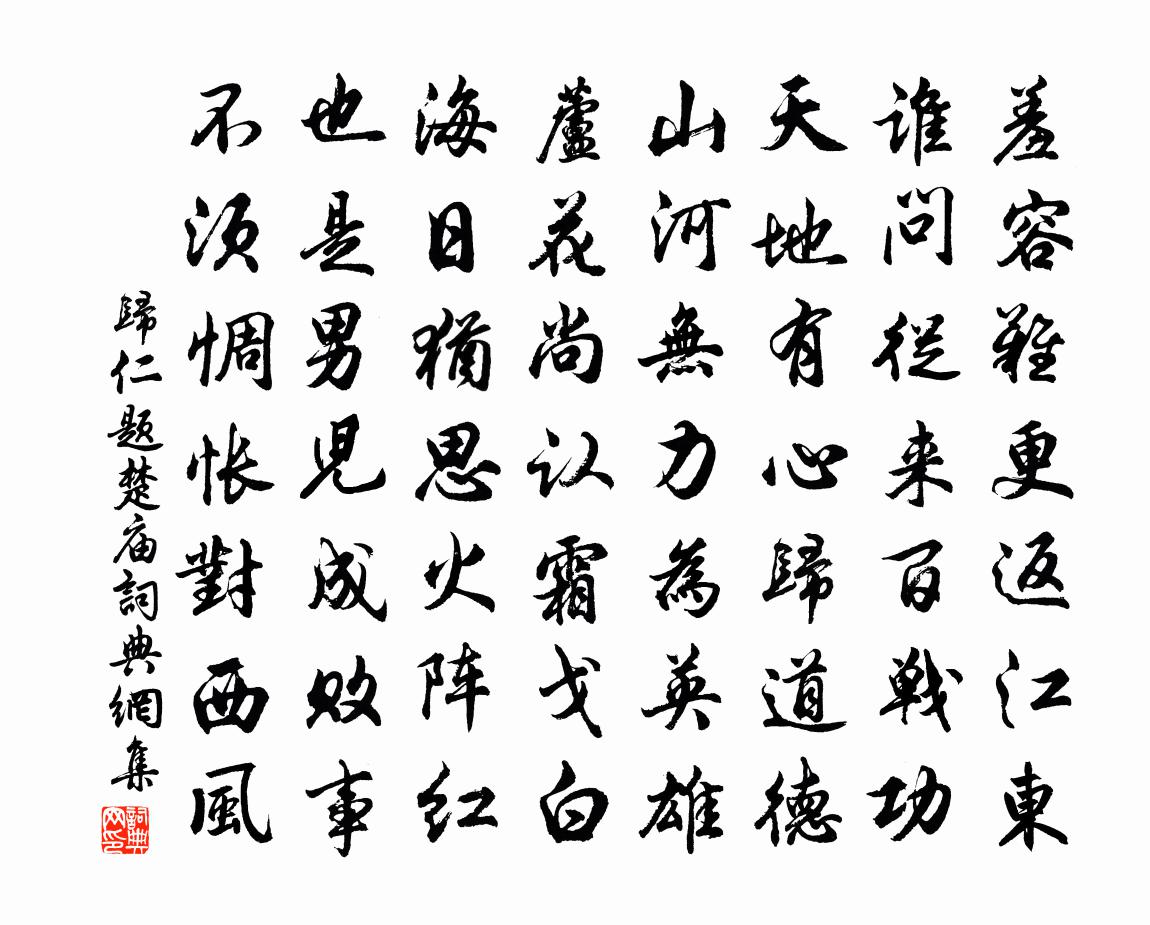 羞容難更返江東
谁問從来百戰功
天地有心歸道德
山河無力為英雄
蘆花尚认霜戈白
海日猶思火阵红
也是男児成敗事
不须惆怅對西風
歸仁题楚庙詞典網集
詞典网印